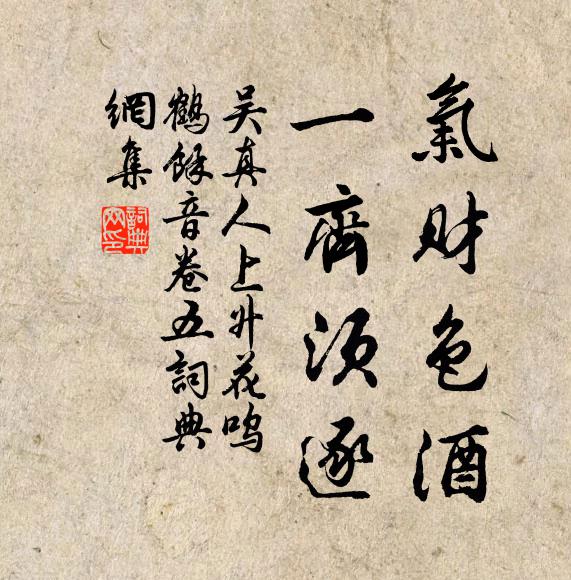 氣財色酒
一齊須逐
吳真人上升花鳴
鶴餘音卷五詞典
網集
詞典網印